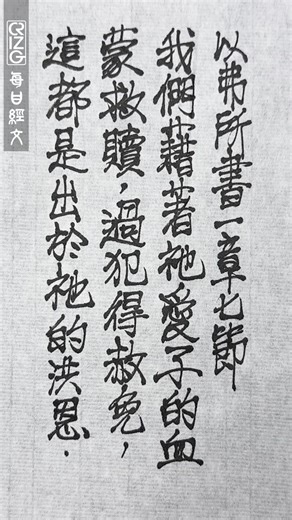 以弗所書一章七節
我們藉著祂愛子的血
蒙救贖，過犯得赦免，
這都是出於祂的洪恩．
每日經文